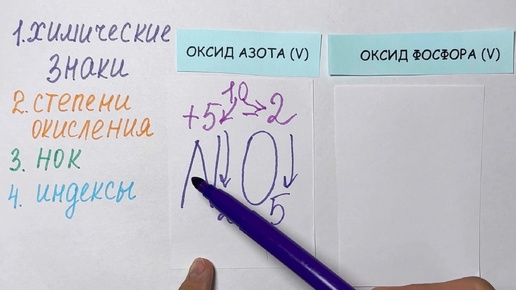 1. ХИМИЧЕСКИЕ
ЗНАКИ
2. СТЕПЕНИ
ОКИСЛЕНИЯ
3. НОК
4. ИНДЕКСЫ
ОКСИД АЗОТА (V)
10
+5 2
N O
5
ОКСИД ФОСФОРА (V)